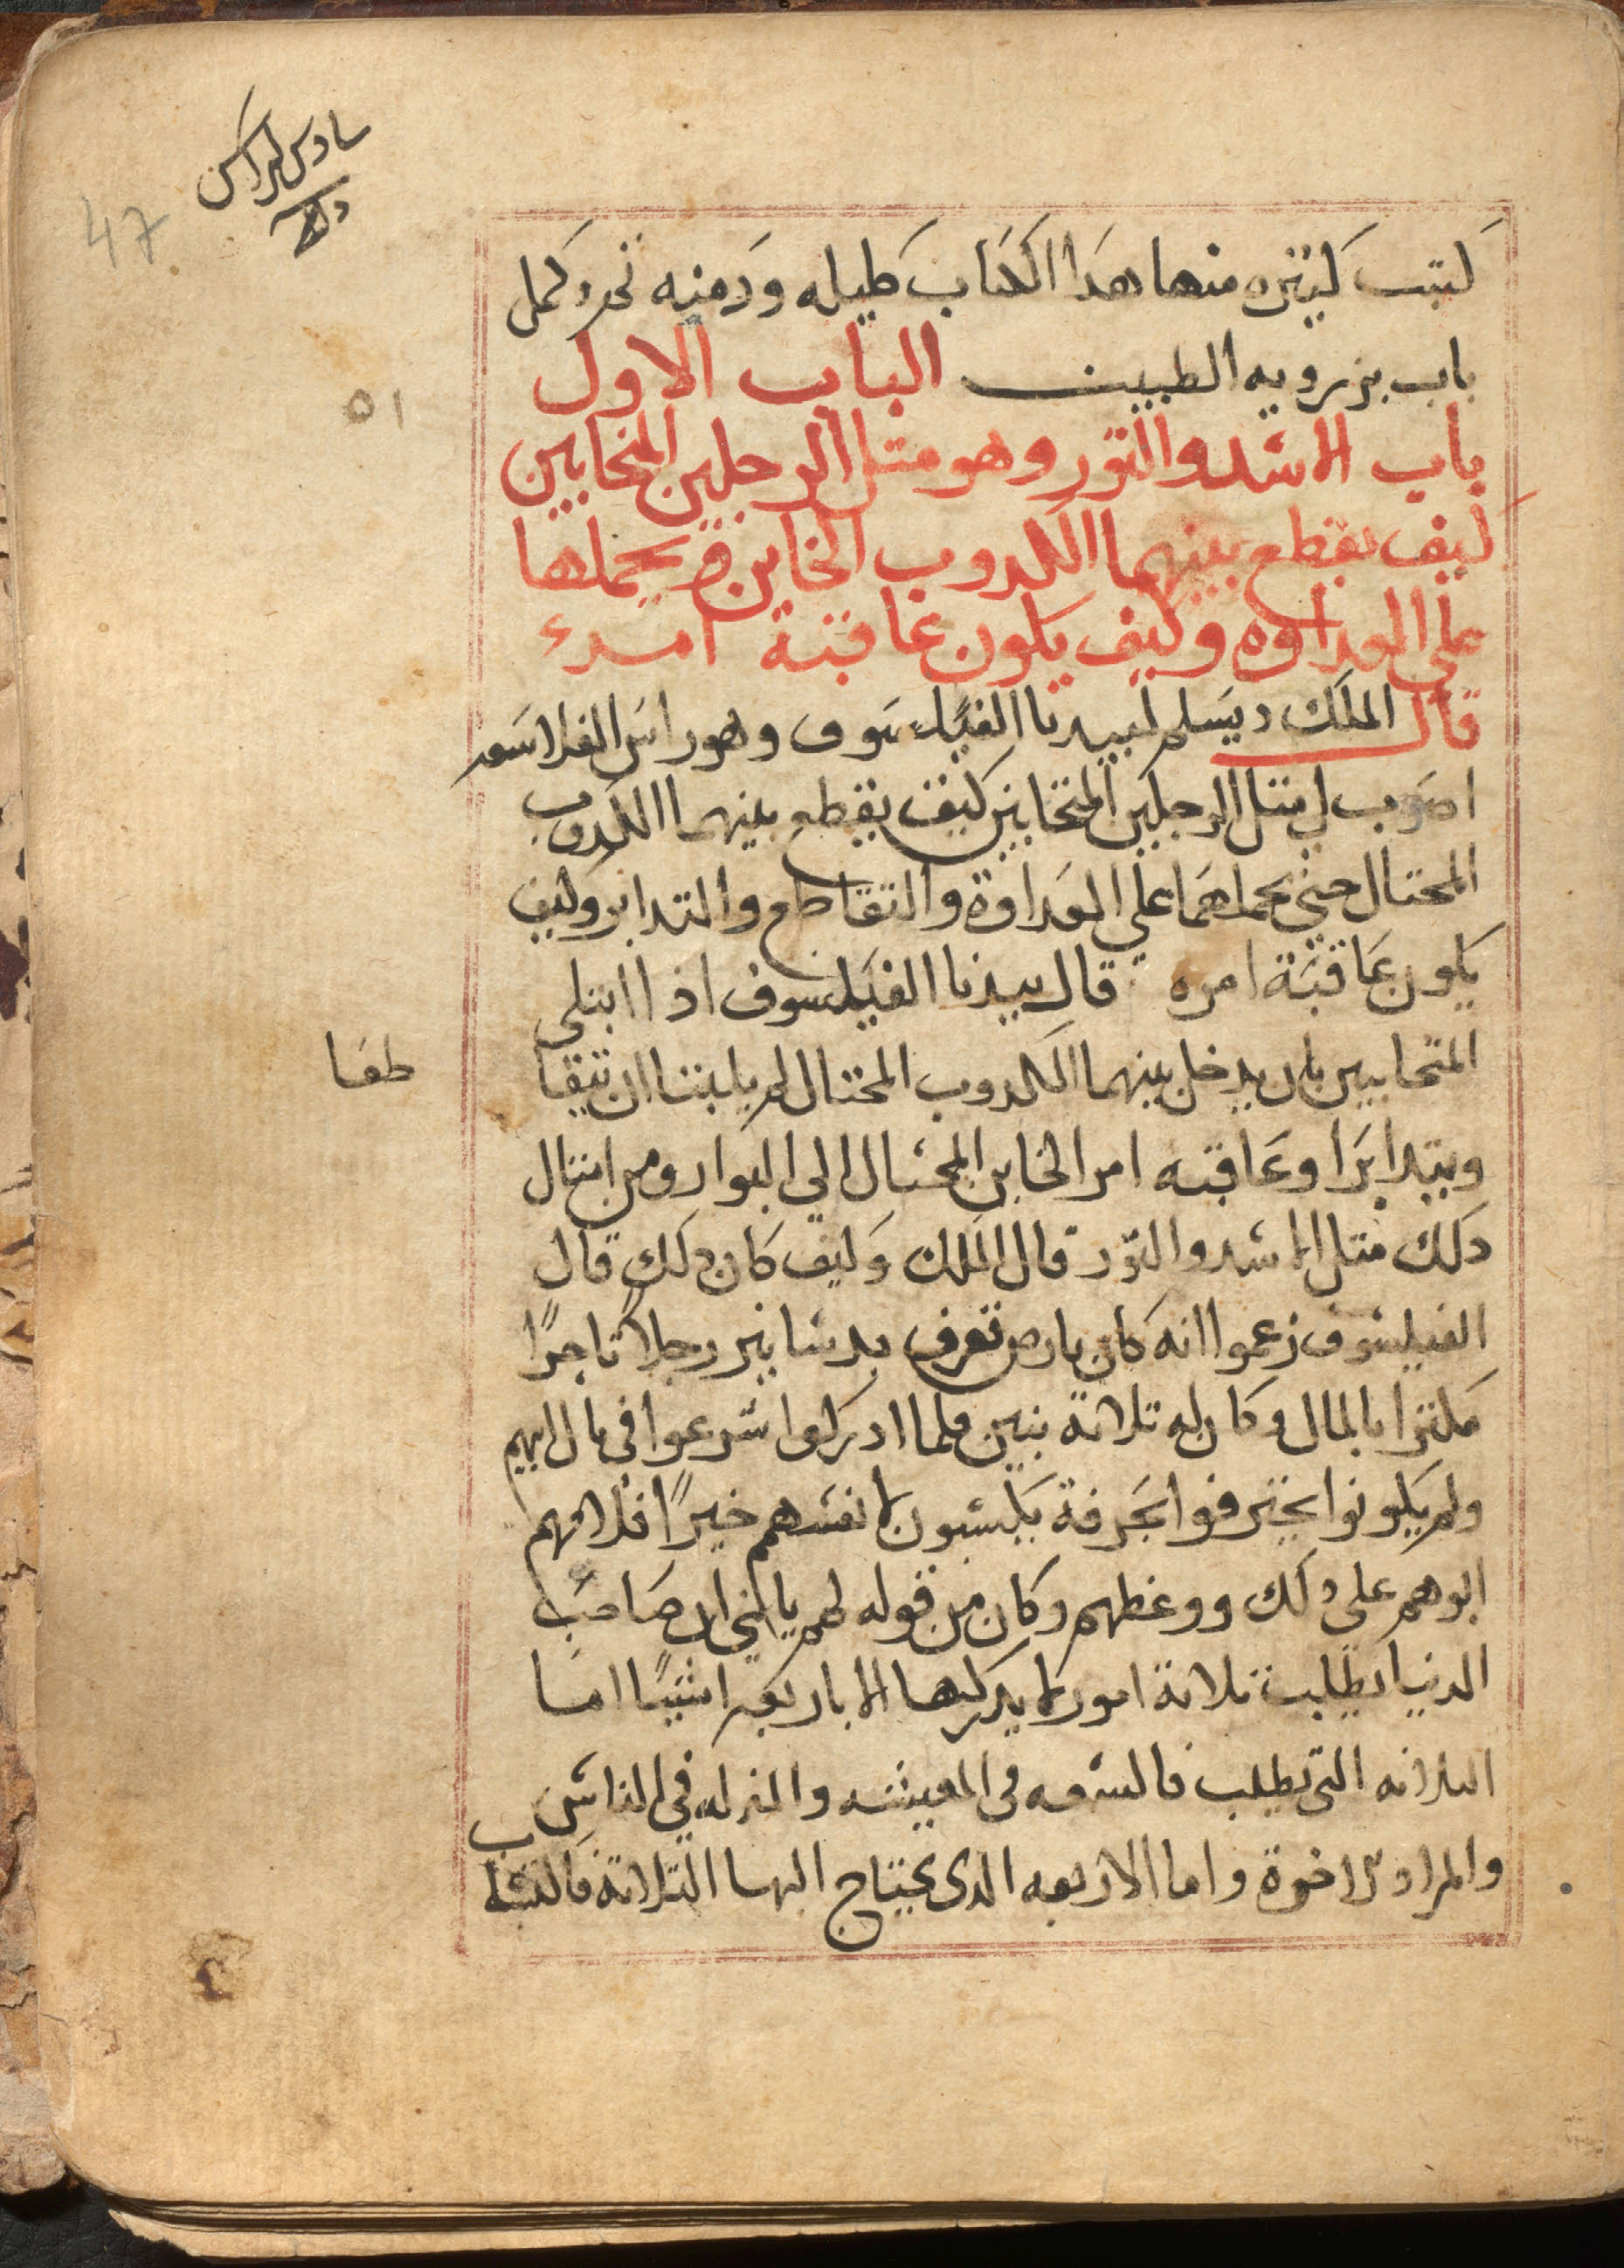 47
٥١
كتب كتيره منها هدا الكتاب كليله ودمنه تم وكمل
باب بزرويه الطبيب الباب الاول
باب الاسد والتور وهو متل الرجلين المتحابين
كيف يقطع بينهما الكدوب الخاين ويحملها
على العداوه وكيف يكون عاقبة امره
قال الملك ديسلم لبيدبا الفيلسوف وهو راس الفلاسفه
اضرب لي متل الرجلين المتحابين كيف يقطع بينهما الكدوب
المحتال حتي يحملهما علي العداوة والتقاطع والتدابر وكيف
يكون عاقبة امره قال بيدبا الفيلسوف اذا ابتلى
المتحابين بان يدخل بينهما الكدوب المحتال لم يلبتا ان يتقا
طعا
ويتدابرا وعاقبه امر الخاين المحتال الي البوار ومن امتال
دلك متل الاسد والتور قال الملك وكيف كان دلك قال
الفيلسوف زعموا انه كان بارض تعرف رجلا تاجرًا
مكترا بالمال وكان له تلاتة بنين فلما ادركوا شرعوا في مال ابيهم
ولم يكونوا يحترفوا بحرفة يكسبون لانفسهم خيرًا فلامهم
ابوهم على دلك ووعظهم وكان من قوله لهم يا بني ان صاحب
الدنيا يطلب تلاتة امور لا يدركها الا باربعه اشيًا اما
التلاته التى يطلب فالسعه في المعيشه والمنزله في الناس
والمراد للاخرة واما الاربعه الدى يحتاج اليها التلاتة فاكتساب